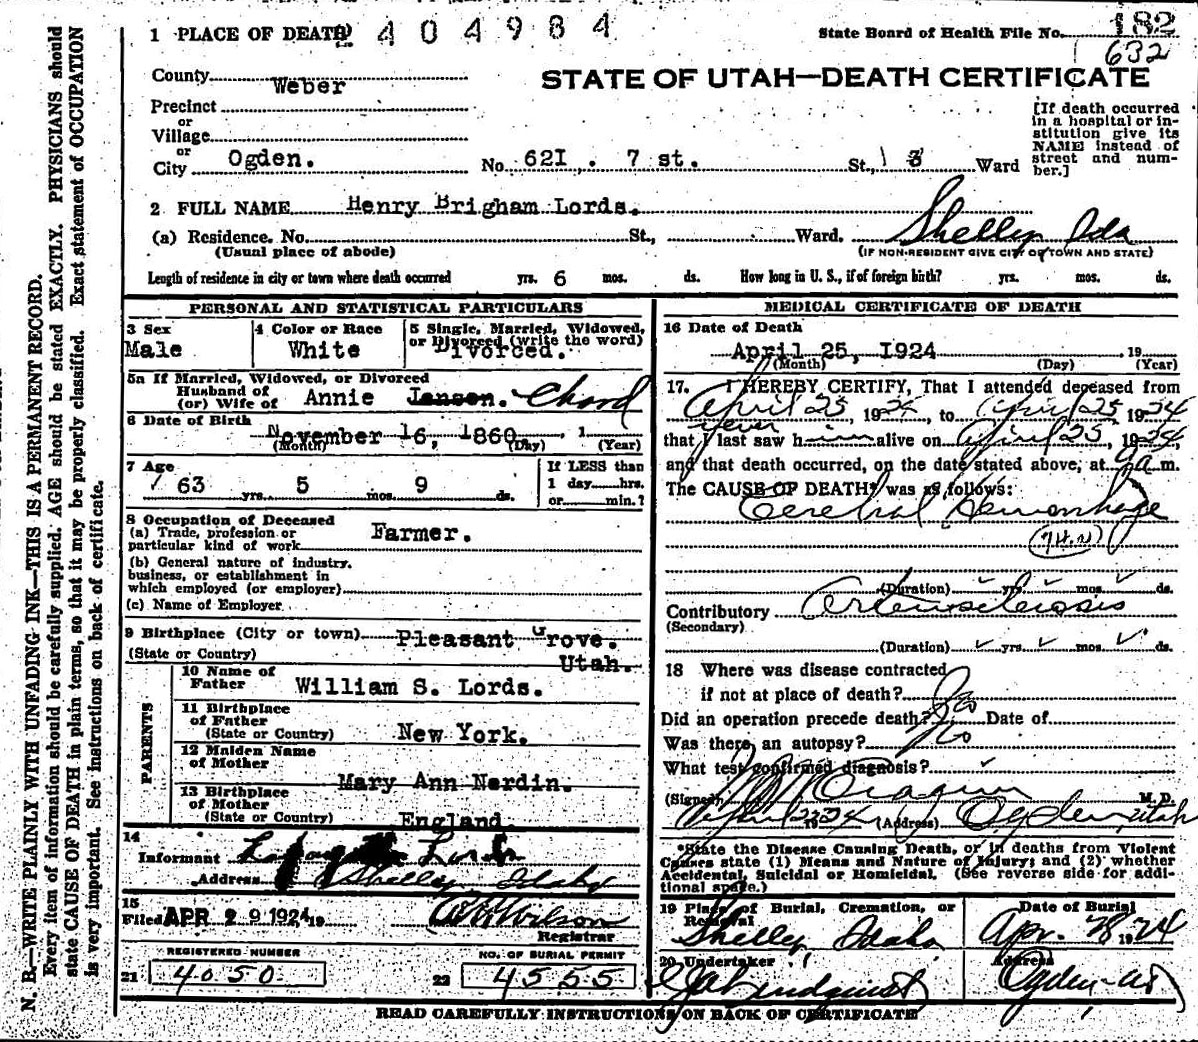 1 PLACE OF DEATH 404984
State Board of Health File No. 182
632
County Weber
STATE OF UTAH—DEATH CERTIFICATE
Precinct
or
Village
or
City Ogden. No. 62I . 7 st. St., 3 Ward
[If death occurred
in a hospital or in-
stitution give its
NAME instead of
street and num-
ber.]
2 FULL NAME Henry Brigham Lords.
(a) Residence. No. St., Ward. Shelley Ida
(Usual place of abode) (IF NON-RESIDENT GIVE CITY OR TOWN AND STATE)
Length of residence in city or town where death occurred yrs. 6 mos. ds. How long in U. S., if of foreign birth? yrs. mos. ds.
PERSONAL AND STATISTICAL PARTICULARS
3 Sex
Male
4 Color or Race
White
5 Single, Married, Widowed,
or Divorced (write the word)
Divorced.
5a If Married, Widowed, or Divorced
Husband of
(or) Wife of Annie Jansen. Chord
6 Date of Birth
November 16, 1860
(Month) (Day) (Year)
7 Age
63 yrs. 5 mos. 9 ds.
If LESS than
1 day hrs.
or min.?
8 Occupation of Deceased
(a) Trade, profession or
particular kind of work Farmer.
(b) General nature of industry,
business, or establishment in
which employed (or employer)
(c) Name of Employer
9 Birthplace (City or town) Pleasant Grove.
(State or Country) Utah.
PARENTS
10 Name of
Father William S. Lords.
11 Birthplace
of Father
(State or Country) New York.
12 Maiden Name
of Mother
Mary Ann Nerdin.
13 Birthplace
of Mother
(State or Country) England
14
Informant Lords
Address Shelley, Idaho
15
Filed APR 29 1924 19
Wilson
Registrar
REGISTERED NUMBER
21 4050
NO. OF BURIAL PERMIT
22 4555
MEDICAL CERTIFICATE OF DEATH
16 Date of Death
April 25, I924 19
(Month) (Day) (Year)
17. I HEREBY CERTIFY, That I attended deceased from
April 25, 1924, to April 25 1924
never
that I last saw him alive on April 25, 1924,
and that death occurred, on the date stated above, at 9 a m.
The CAUSE OF DEATH* was as follows:
Cerebral Hemorrhage
(Duration) yrs. mos. ds.
Contributory Arteriosclerosis
(Secondary)
(Duration) yrs. mos. ds.
18 Where was disease contracted
if not at place of death?
Did an operation precede death? No Date of
Was there an autopsy? No
What test confirmed diagnosis?
(Signed) M.D.
April 25 1924 (Address) Ogden, Utah
*State the Disease Causing Death, or in deaths from Violent
Causes state (1) Means and Nature of Injury; and (2) whether
Accidental, Suicidal or Homicidal. (See reverse side for addi-
tional space.)
19 Place of Burial, Cremation, or
Removal
Shelley, Idaho
Date of Burial
Apr. 28 1924
20 Undertaker
Lindquist
Address
Ogden
READ CAREFULLY INSTRUCTIONS ON BACK OF CERTIFICATE
N. B.—WRITE PLAINLY WITH UNFADING INK—THIS IS A PERMANENT RECORD.
Every item of information should be carefully supplied. AGE should be stated EXACTLY. PHYSICIANS should
state CAUSE OF DEATH in plain terms, so that it may be properly classified. Exact statement of OCCUPATION
is very important. See instructions on back of certificate.